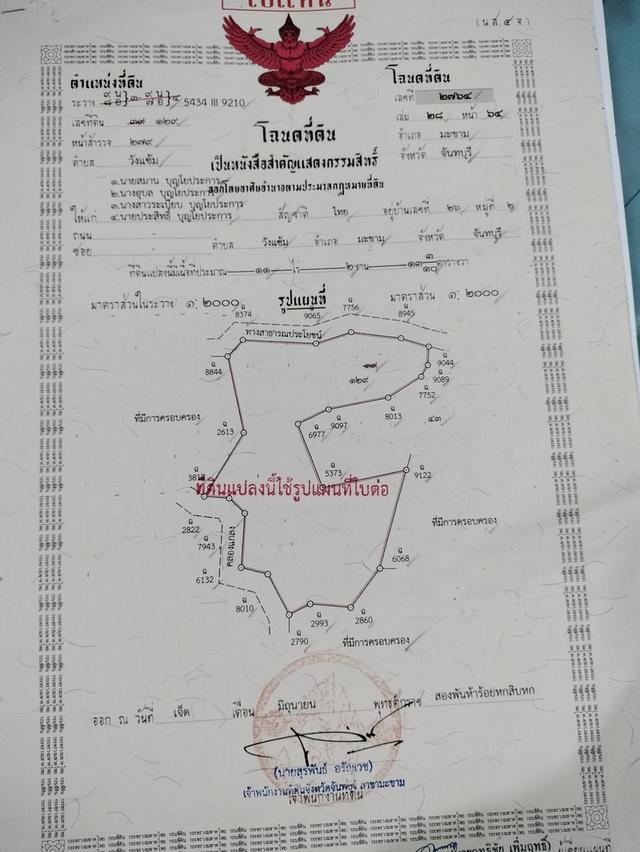 ใบแทน
(น.ส.๔ จ.)
ตำแหน่งที่ดิน
ระวาง 5434 III 9210
เลขที่ดิน ๑๒๙
หน้าสำรวจ ๒๗๙
ตำบล วังแซ้ม
โฉนดที่ดิน
เลขที่ ๒๗๖๔
เล่ม ๒๘ หน้า ๖๔
อำเภอ มะขาม
จังหวัด จันทบุรี
โฉนดที่ดิน
เป็นหนังสือสำคัญแสดงกรรมสิทธิ์
ออกโดยอาศัยอำนาจตามประมวลกฎหมายที่ดิน
๑.นายสมาน บุญโยประการ
๒.นางอุบล บุญโยประการ
๓.นางสาวระเบียบ บุญโยประการ
ให้แก่ ๔.นายประสิทธิ์ บุญโยประการ สัญชาติ ไทย อยู่บ้านเลขที่ ๒๖ หมู่ที่ ๒
ถนน -
ซอย - ตำบล วังแซ้ม อำเภอ มะขาม จังหวัด จันทบุรี
ที่ดินแปลงนี้มีเนื้อที่ประมาณ ๑๑ ไร่ ๒ งาน ๑๓ ๓/๑๐ ตารางวา
มาตราส่วนในระวาง ๑:๒๐๐๐ รูปแผนที่ มาตราส่วน ๑:๒๐๐๐
ฉ 8374
ฉ 9065
ฉ 7756
ฉ 8945
ทางสาธารณประโยชน์
ฉ 8844
ฉ 9044
ฉ 9089
ฉ 7752
๑๒๙
ฉ 8013
๔๓
ที่มีการครอบครอง
ฉ 2613
ฉ 6977
ฉ 9097
ฉ 5373
ฉ 9122
ที่ดินแปลงนี้ใช้รูปแผนที่ใบต่อ
ฉ 2822
ฉ 7943
คลองแกลง
ที่มีการครอบครอง
ฉ 6132
ฉ 6068
ฉ 8010
ฉ 2993
ฉ 2860
ฉ 2790
ที่มีการครอบครอง
ออก ณ วันที่ เจ็ด เดือน มิถุนายน พุทธศักราช สองพันห้าร้อยหกสิบหก
(นายสุรพันธ์ อรัญเวช)
เจ้าพนักงานที่ดินจังหวัดจันทบุรี สาขามะขาม
เจ้าพนักงานที่ดิน